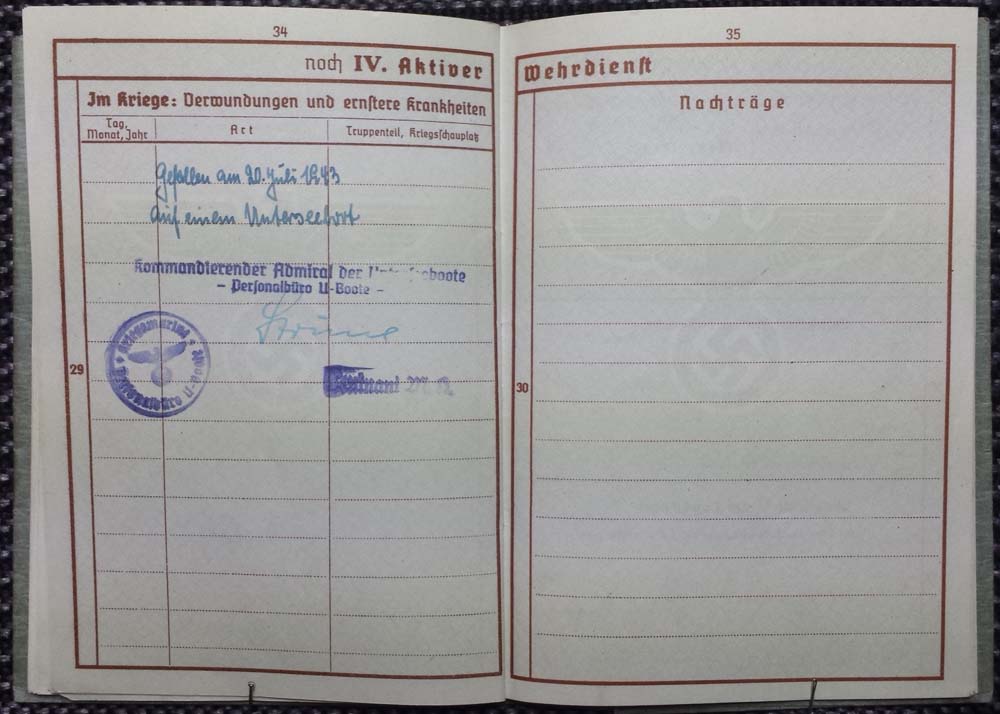 34
noch IV. Aktiver
Im Kriege: Verwundungen und ernstere Krankheiten
Tag, Monat, Jahr
Art
Truppenteil, Kriegsschauplatz
Gefallen am 20. Juli 1943
auf einem Unterseeboot
Kommandierender Admiral der
– Personalbüro U-Boote –
Kriegsmarine
Personalbüro U-Boote
Leutnant M.A.
29
35
Wehrdienst
Nachträge
30